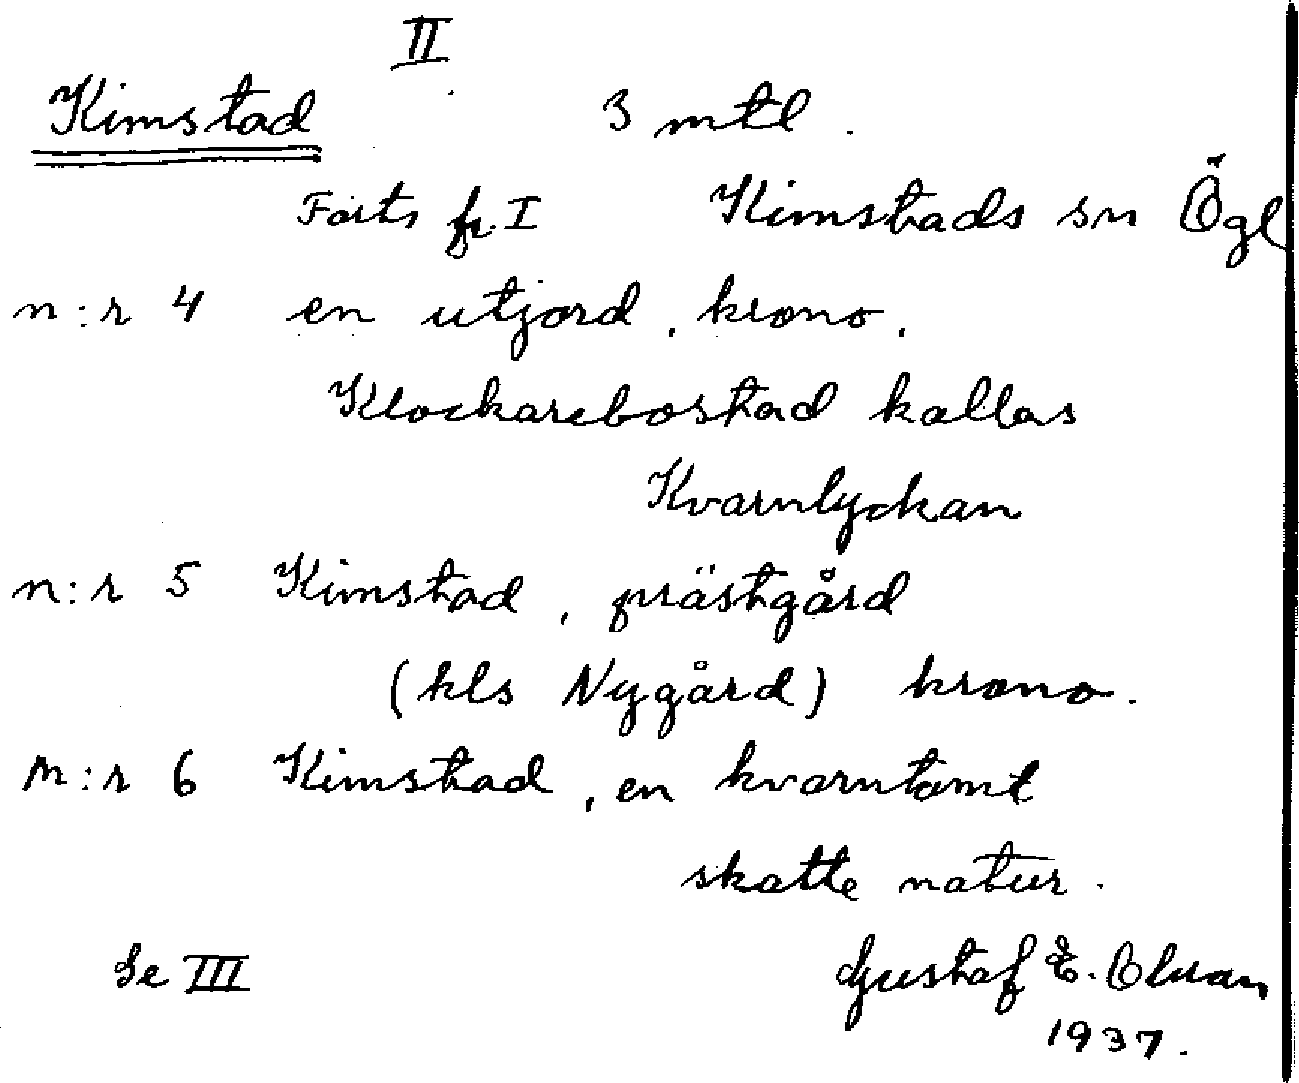 II
Kimstad 3 mtl.
Forts fr. I Kimstads sn Ögl
n:r 4 en utjord, krono.
Klockarebostad kallas
Kvarnlyckan
n:r 5 Kimstad, prästgård
(kls Nygård) krono.
n:r 6 Kimstad, en kvarntomt
skatte natur.
Se III Gustaf E. Olsson
1937.